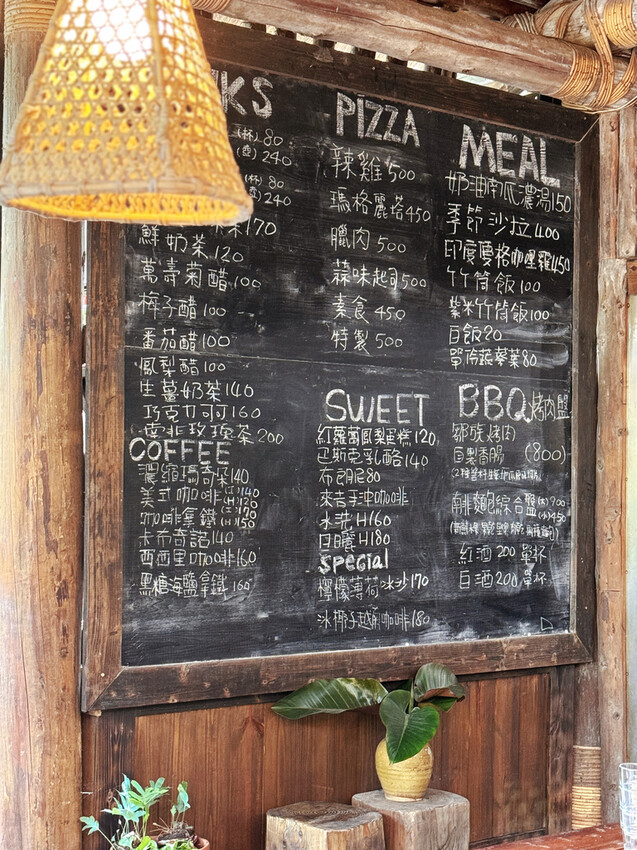 KS
(杯) 80
(壺) 240
(杯) 80
(壺) 240
170
鮮奶茶 120
萬壽菊醋 100
梅子醋 100
番茄醋 100
鳳梨醋 100
生薑奶茶 140
巧克力可可 160
南非玫瑰茶 200
COFFEE
濃縮瑪奇朵 140
美式咖啡 (I) 140 (H) 120
咖啡拿鐵 (I) 170 (H) 150
卡布奇諾 140
西西里咖啡 160
黑糖海鹽拿鐵 160
PIZZA
辣雞 500
瑪格麗塔 450
臘肉 500
蒜味起司 500
素食 450
特製 500
SWEET
紅蘿蔔鳳梨蛋糕 120
巴斯克乳酪 140
布朗尼 80
來吉手沖咖啡
水洗 H160
日曬 H180
Special
檸檬薄荷冰沙 170
冰椰子越南咖啡 180
MEAL
奶油南瓜濃湯 150
季節沙拉 400
印度瑪格咖哩雞 450
竹筒飯 100
紫米竹筒飯 100
白飯 20
單份蔬菜 80
BBQ 烤肉盤
鄒族烤肉
自製香腸 (800)
南非麵包綜合盤 (大) 900
(小) 450
紅酒 200 單杯
白酒 200 單杯